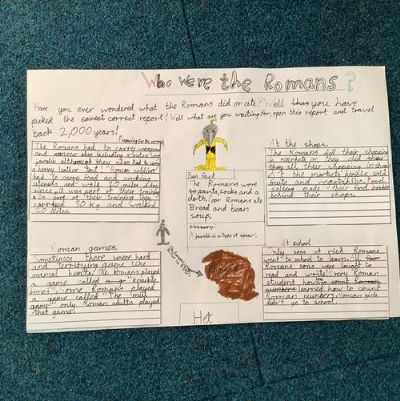 Who were the Romans?
Have you ever wondered what the Romans did or ate? Well then you have
picked the correct report! Well what are you waiting for, open this report and travel
back 2,000 years!
The Romans had to carry weapons
and armour also including a
javelin although they also had to
a heavy leather tent. Roman soldiers
had to carry food and cooking
utensils and walk 20 miles a day
since it was part of their training
30 kg and walked
20 miles.
Fun fact
The Romans wore
no pants, socks and a
cloth. Poor Romans ate
Bread and bean
soup.
A javelin is a type of spear.
At the shops.
The Romans did their shopping
in markets or they did their
their shopping in shops
At the markets people sold
fruits and vegetables, food
selling their food
behind their shops.
Roman games.
Sometimes there were hard
and terrifying games like
The Romans played
a game called knuckle
bones. Some Romans played
a game called "The mill
game" only Roman adults played
that game.
At school
Only sons of rich Romans
went to school to learn.
Romans sons were taught to
read and write every Roman
student
learned how to count
Roman numbers. Roman girls
didn't go to school.